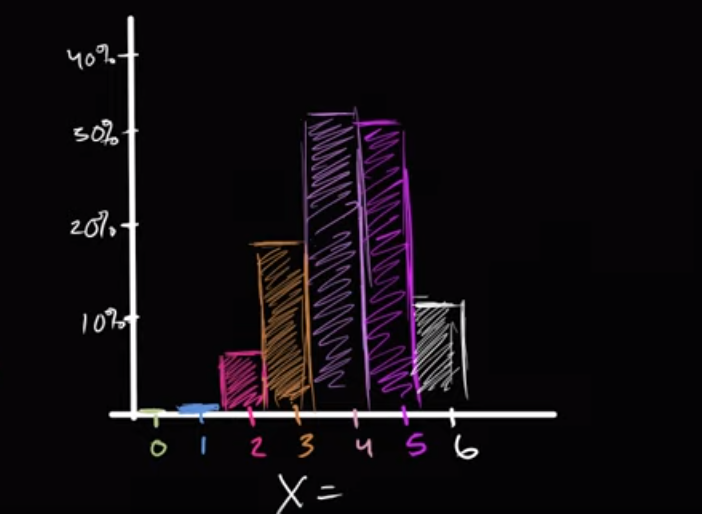 40%
30%
20%
10%
0 1 2 3 4 5 6
X =